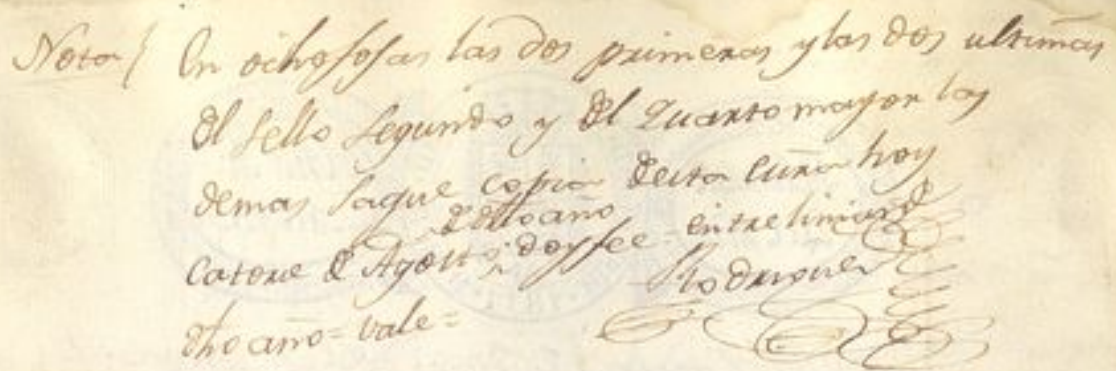 Nota{ En ocho fojas las dos primeras y las dos ultimas
del sello segundo y del quarto mayor las
demas saque copia de esta Escra hoy
de dho año
catorce de Agosto, doy fee = entre lineas = de
dho año = vale =
Rodriguez